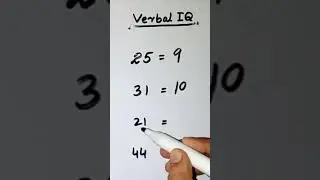 Verbal IQ
25 = 9
31 = 10
21 =
44